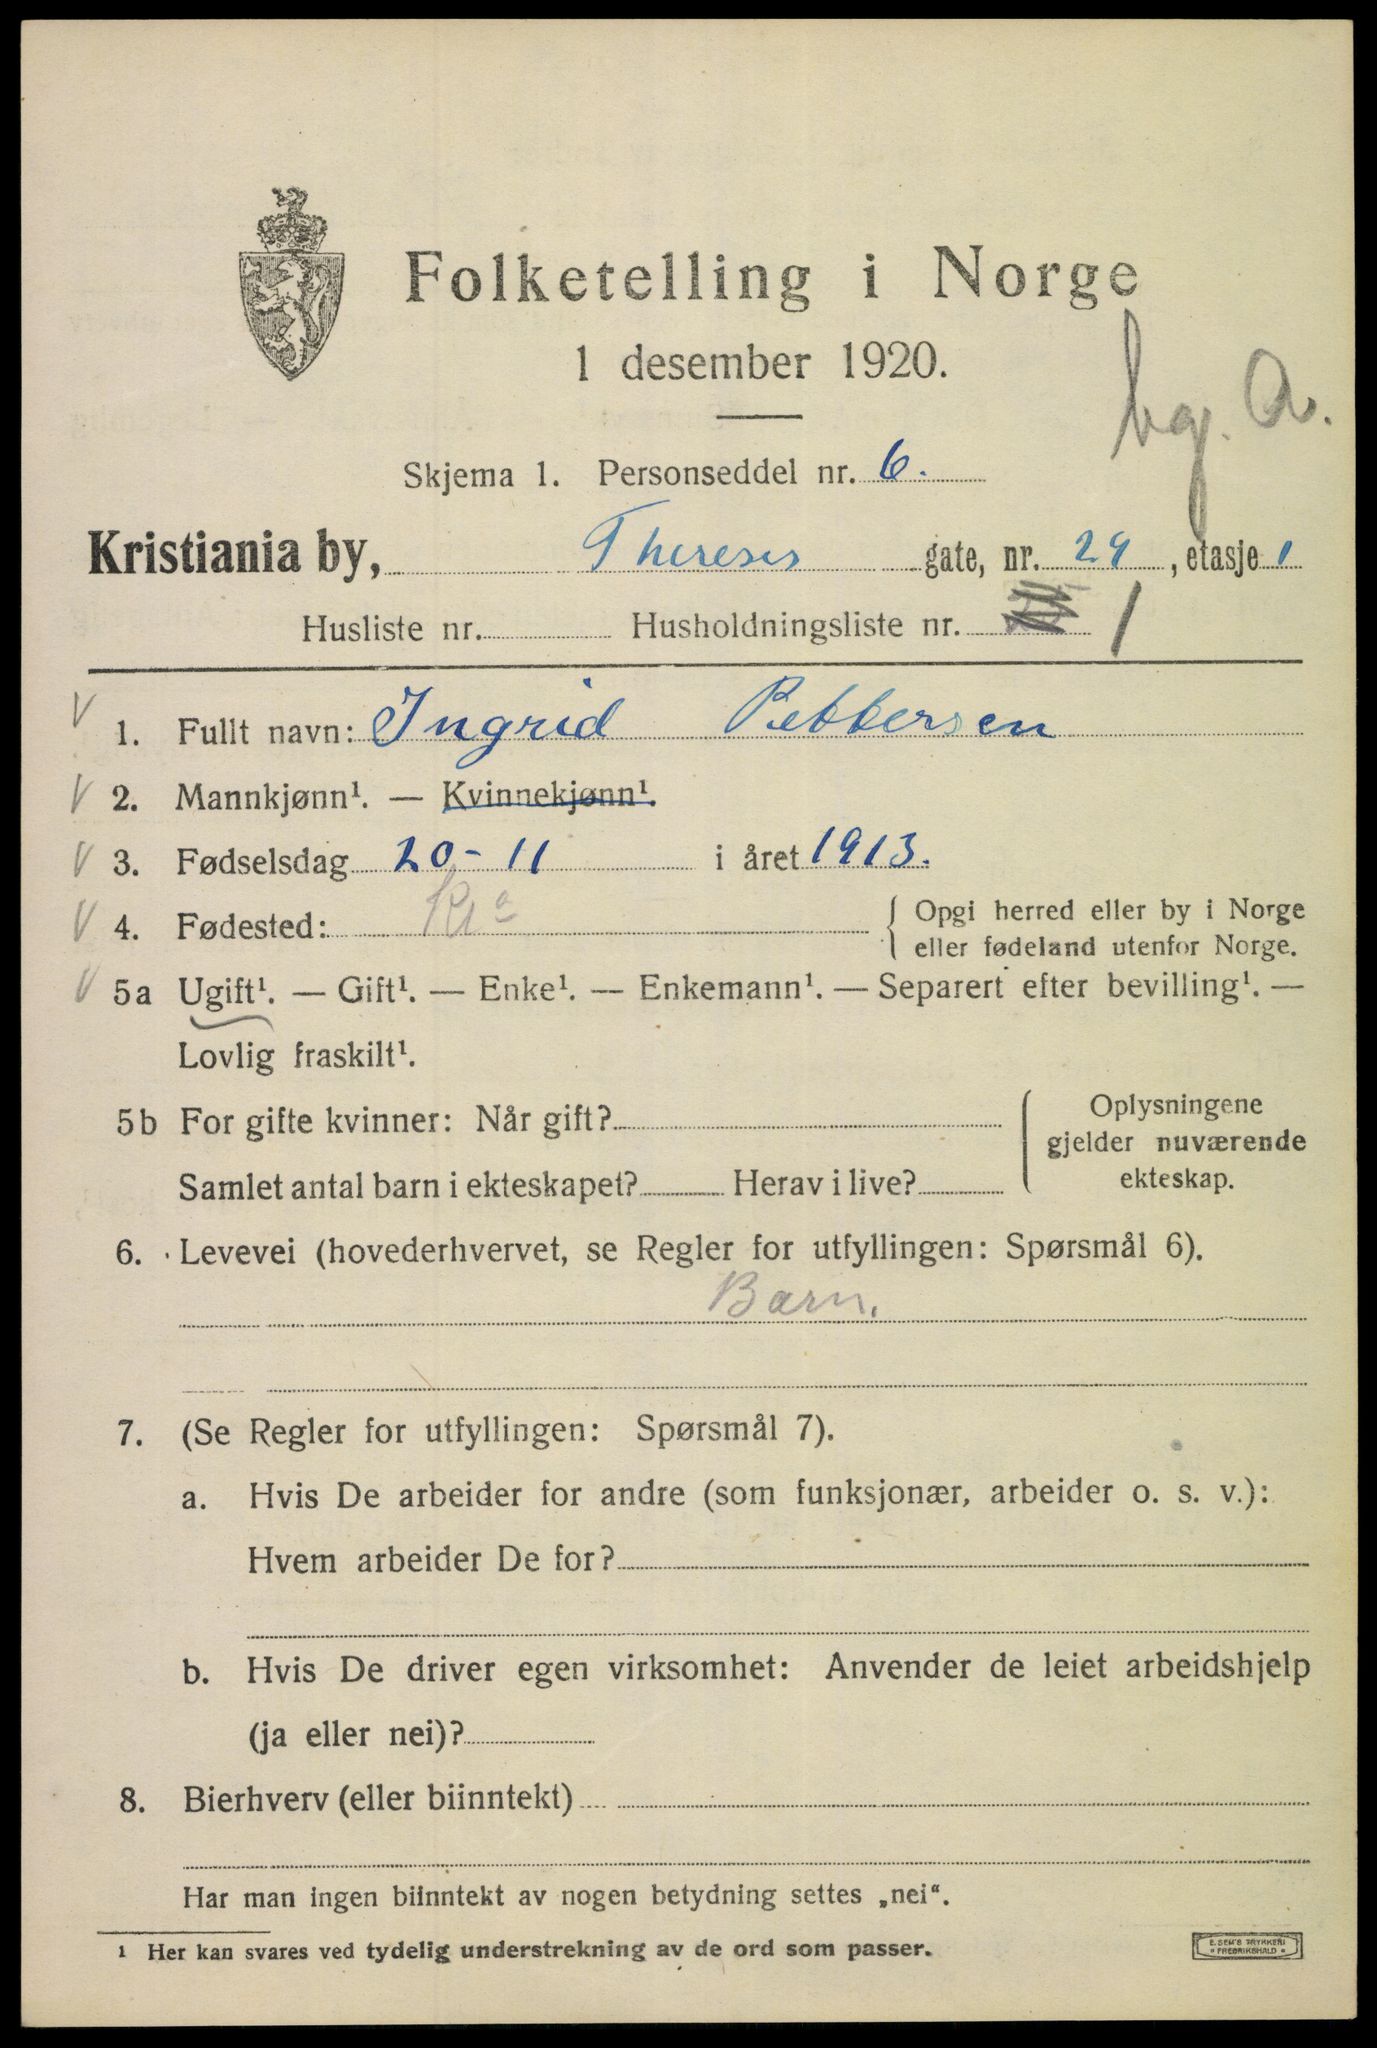 Folketelling i Norge
1 desember 1920.
bg. A.
Skjema 1. Personseddel nr. 6.
Kristiania by, Thereses gate, nr. 29, etasje 1
Husliste nr. Husholdningsliste nr. 1
V 1. Fullt navn: Ingrid Pettersen
V 2. Mannkjønn¹. — Kvinnekjønn¹.
V 3. Fødselsdag 20-11 i året 1913.
V 4. Fødested: Kra
Opgi herred eller by i Norge
eller fødeland utenfor Norge.
V 5a Ugift¹. — Gift¹. — Enke¹. — Enkemann¹. — Separert efter bevilling¹. —
Lovlig fraskilt¹.
5b For gifte kvinner: Når gift?
Samlet antal barn i ekteskapet? Herav i live?
Oplysningene
gjelder nuværende
ekteskap.
6. Levevei (hovederhvervet, se Regler for utfyllingen: Spørsmål 6).
Barn.
7. (Se Regler for utfyllingen: Spørsmål 7).
a. Hvis De arbeider for andre (som funksjonær, arbeider o. s. v.):
Hvem arbeider De for?
b. Hvis De driver egen virksomhet: Anvender de leiet arbeidshjelp
(ja eller nei)?
8. Bierhverv (eller biinntekt)
Har man ingen biinntekt av nogen betydning settes „nei“.
¹ Her kan svares ved tydelig understrekning av de ord som passer.
E. SEM'S TRYKKERI
FREDRIKSHALD